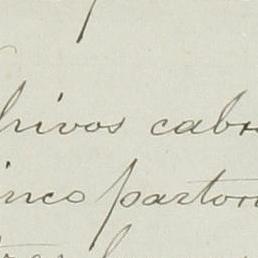 hivos cabr
inco pastor